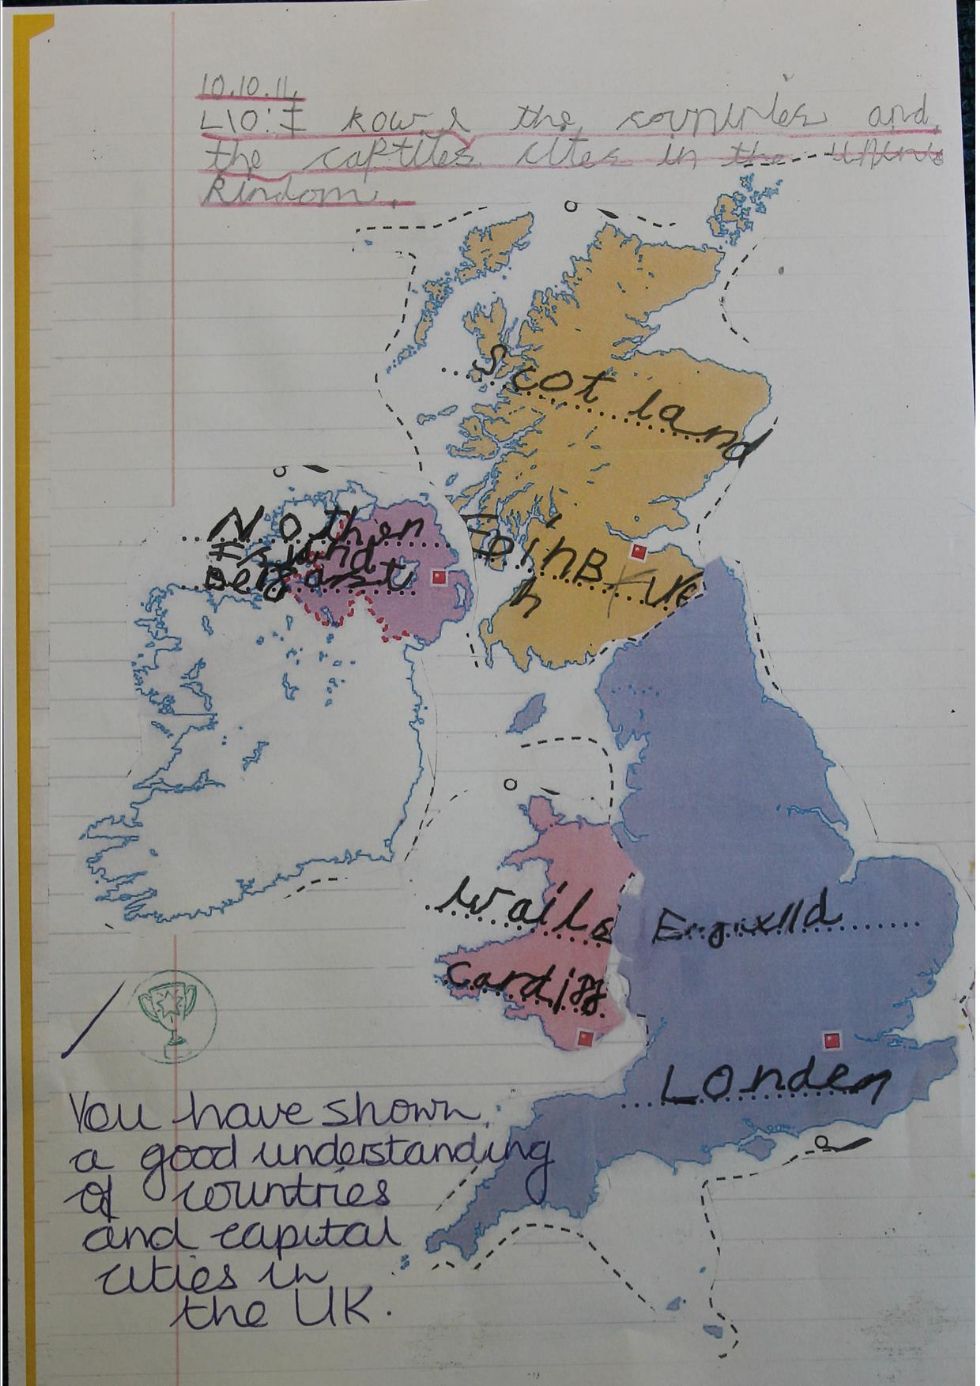 10.10.11.
LIO: I kow the countries and
the captiles cites in the
Kindom.
Scot land
Nothen
Belfast
EDinB
h
Wails
Cardiff
Londen
You have shown
a good understanding
of countries
and capital
cities in
the UK.